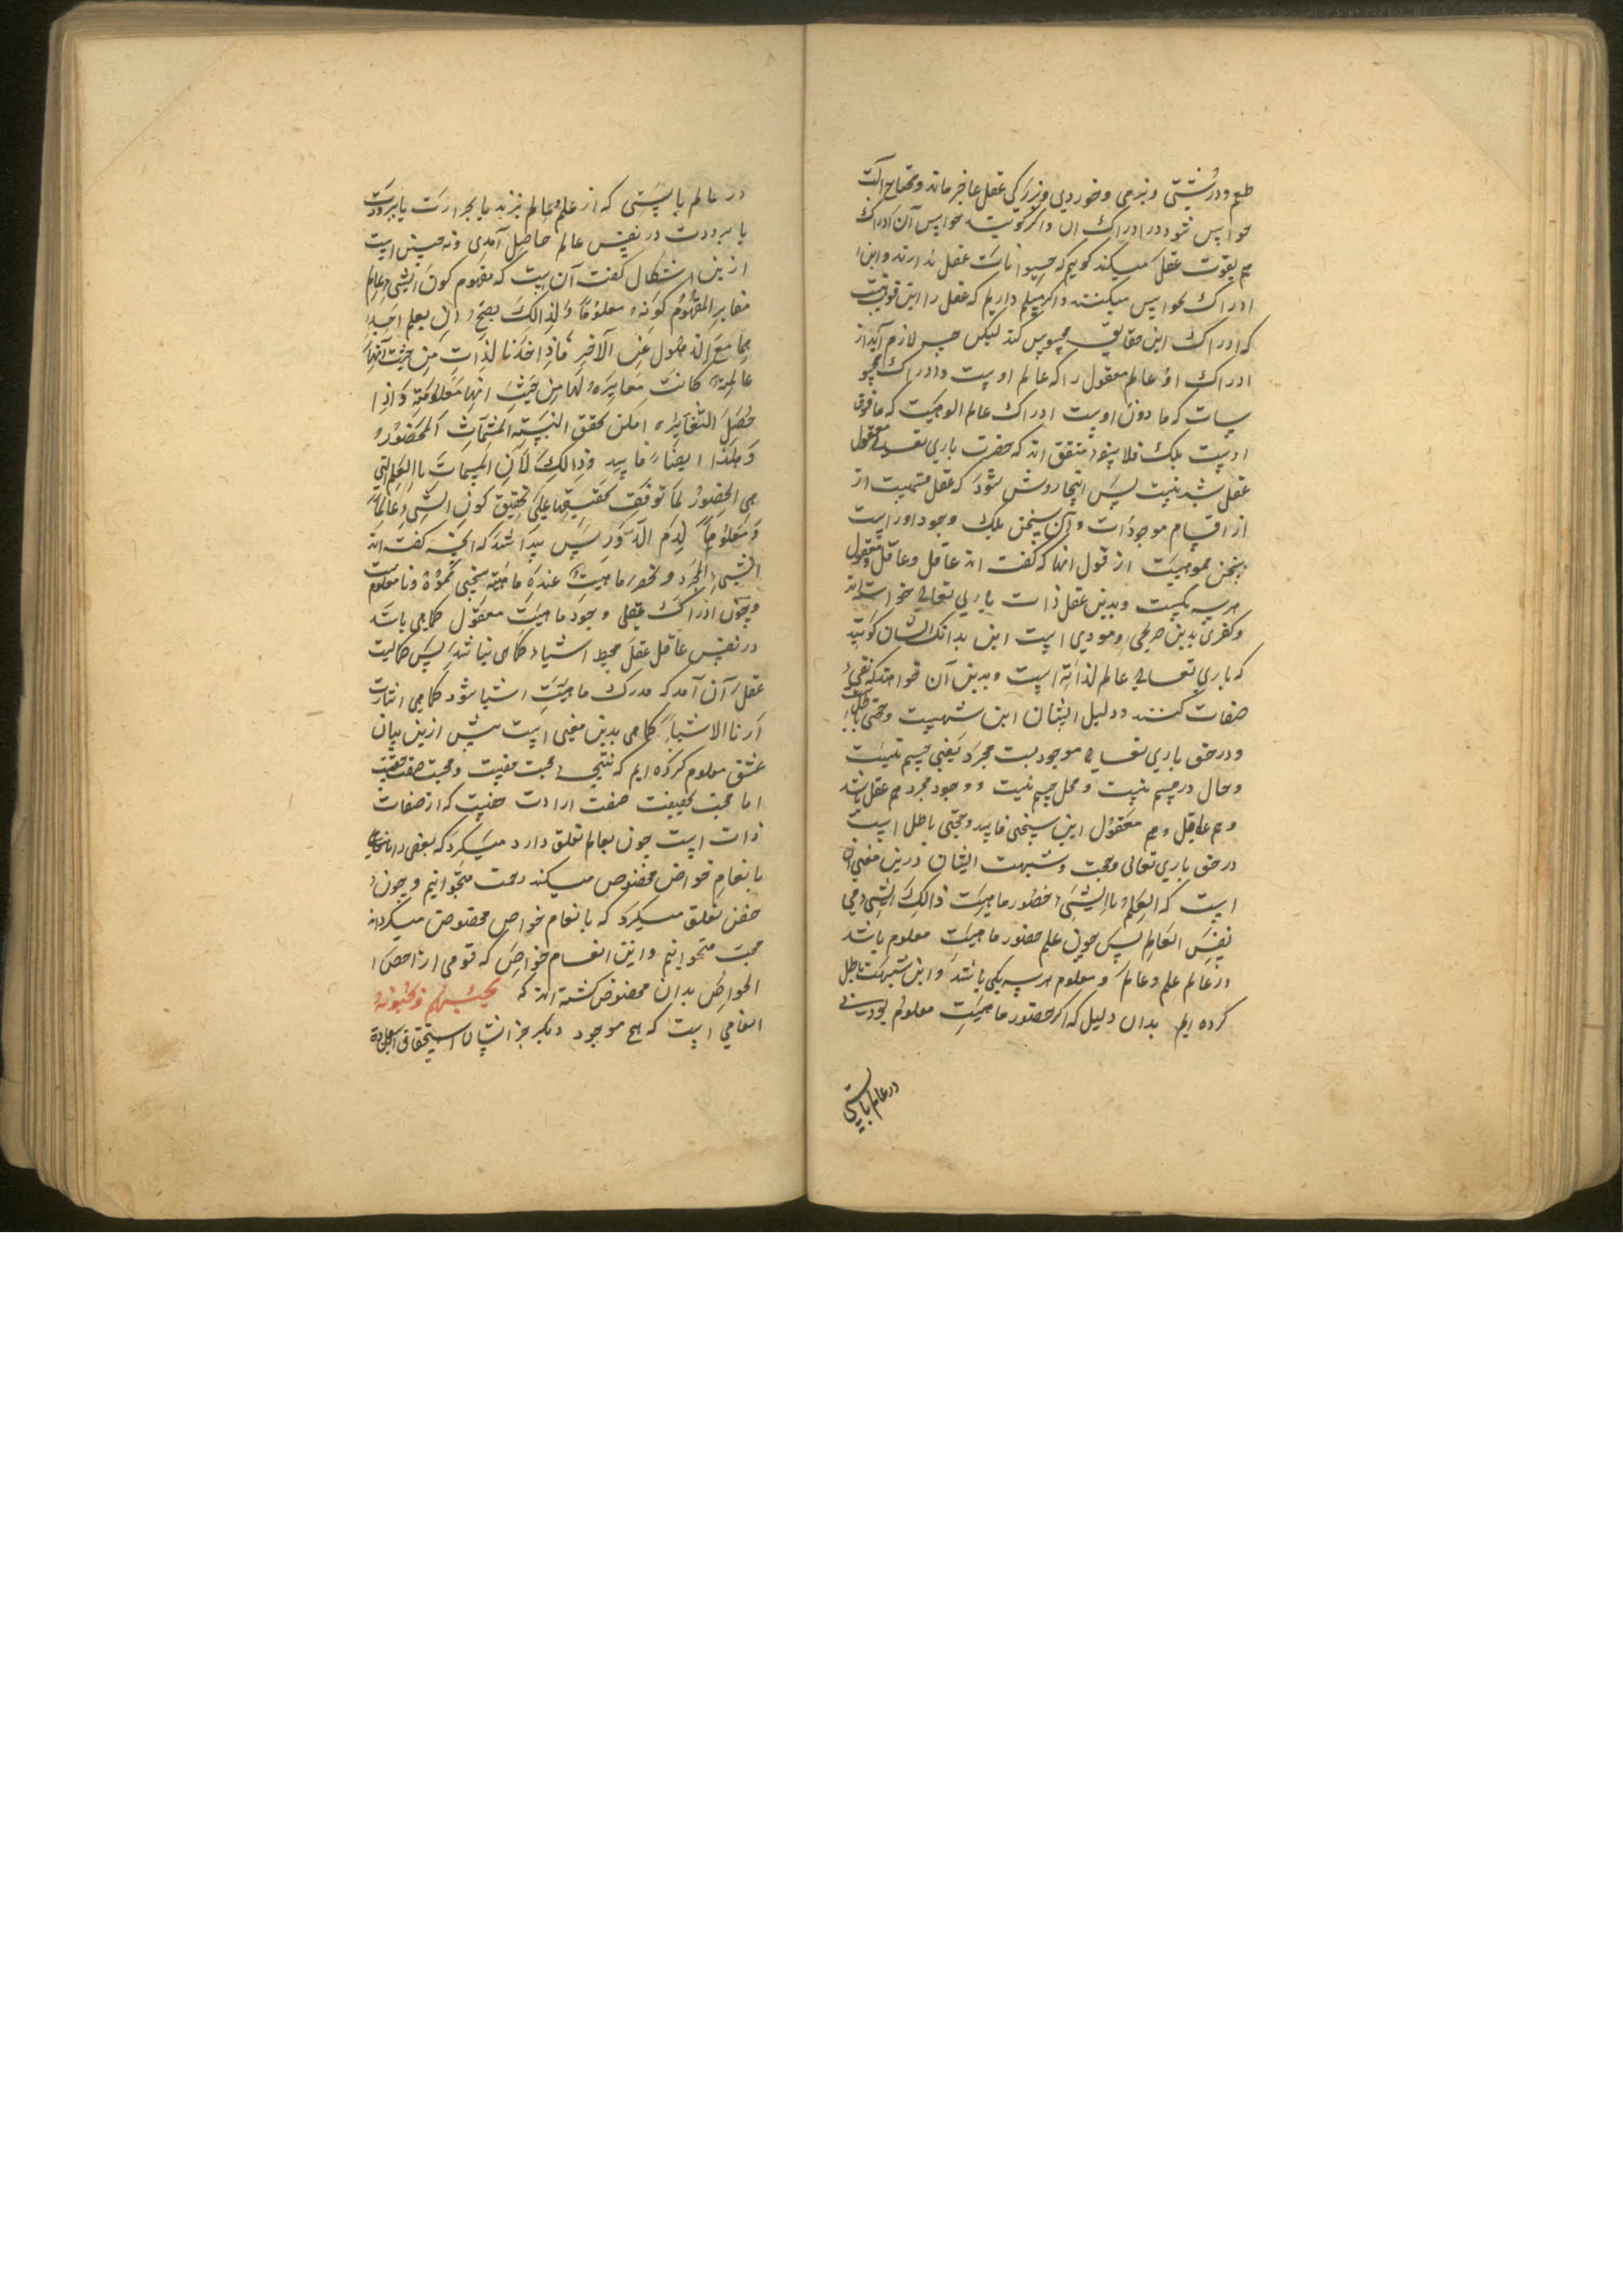 طعم و درشتی و نرمی و خوردی و بزرکی عقل عاجز ماند و محتاج الت
حواس شود در ادراک ان و اکر کویند حواس آن ادراک
هم بقوت عقل میکند کوییم که حیوانات عقل ندارند و این
ادراک بحواس میکنند و اکر مسلم داریم که عقل را این قوت هست
که ادراک این حقایق محسوس کند لیکن چه لازم آید از
ادراک او عالم معقول را که عالم اوست و ادراک محسو
سات که ما دون اوست ادراک عالم الوهیت که ما فوق
اوست بلک فلاسفه متفق اند که حضرت باری تعالی معقول
عقل شدنی نیست پس اینجا روشن شود که عقل قسمیست از
از اقسام موجودات و آن سخن بلک وجود اوراست
سخن مموهیست از قول انها که کفت اند عاقل و عقل و معقول
هر سه یکیست و بدین عقل ذات باری تعالی خواسته اند
و کفری بدین صریحی و مودی است این بدانک ایشان کویند
که باری تعالی عالم لذاته است و بدین آن خواهند که نفی
صفات کنند و دلیل ایشان این شبهیست و حجتی باطل
و در حق باری تعالی موجودیست مجرد یعنی جسم نیست
و حال در جسم نیست و محل جسم نیست و وجود مجرد هم عقل باشد
و هم عاقل و هم معقول این سخنی فاسد و حجتی باطل است
در حق باری تعالی و حجت و شبهت ایشان درین معنی آن
است که العلم باالشیء حضور ماهیت ذالک الشیء فی
نفس العالم پس چون علم حضور ماهیت معلوم باشد
در عالم علم و عالم و معلوم هر سه یکی باشند و این شبهت باطل
کرده ایم بدان دلیل که اکر حضور ماهیت معلوم بودی
در عالم بایستی
در عالم بایستی که از علم عالم بحرارت یا ببرودت
یا برودت در نفس عالم حاصل آمدی و نه چنین است
ازین اشکال کفت آن است که مفهوم کون الشیء عالم
مغایر المفهوم کونه معلوماً و لذالک یصح ان یعلم احد
هما مع الذهول عن الآخر فاذا اخذنا لذات من حیث انها
عالمة کانت مغایرة لها من حیث انها معلومة و اذا
حصل التغایر امکن تحقق النسبة المسمات المحضور
و هذا ایضاً فاسد و ذالک لان المسمات باالعلم التی
هی الحضور لما توقفت تحقیقها علی تحقیق کون الشیء عالماً
و معلوماً لزم الدور پس پیدا شد که انچه کفت اند
الشیء المجرد و تحضر ماهیت عنده ماهیته سخنی مموه و نامعلومست
و چون ادراک عقلی وجود ماهیت معقول کماهی باشد
در نفس عاقل عقل محیط اشیاء کماهی نباشد پس کمالیت
عقل آن آمد که مدرک ماهیت اشیا شود کماهی اشارت
ارنا الاشیاء کماهی بدین معنی است پیش ازین بیان
عشق معلوم کرده ایم که نتیجه محبت مفیست و محبت صفت حقست
اما محبت بحقیقت صفت ارادت حقست که از صفات
ذات است چون بعالم تعلق دارد میکرد که بعضی را
بانعام خواص مخصوص میکند رحمت میخوانیم و چون
حق تعلق میکیرد که بانعام خواص مخصوص میکرداند
محبت میخوانیم و این انعام خواص که قومی از اخص
الخواص بدان مخصوص کشته اند که یحبهم و یحبونه
انعامی است که هیچ موجود دیکر جز انسان استحقاق